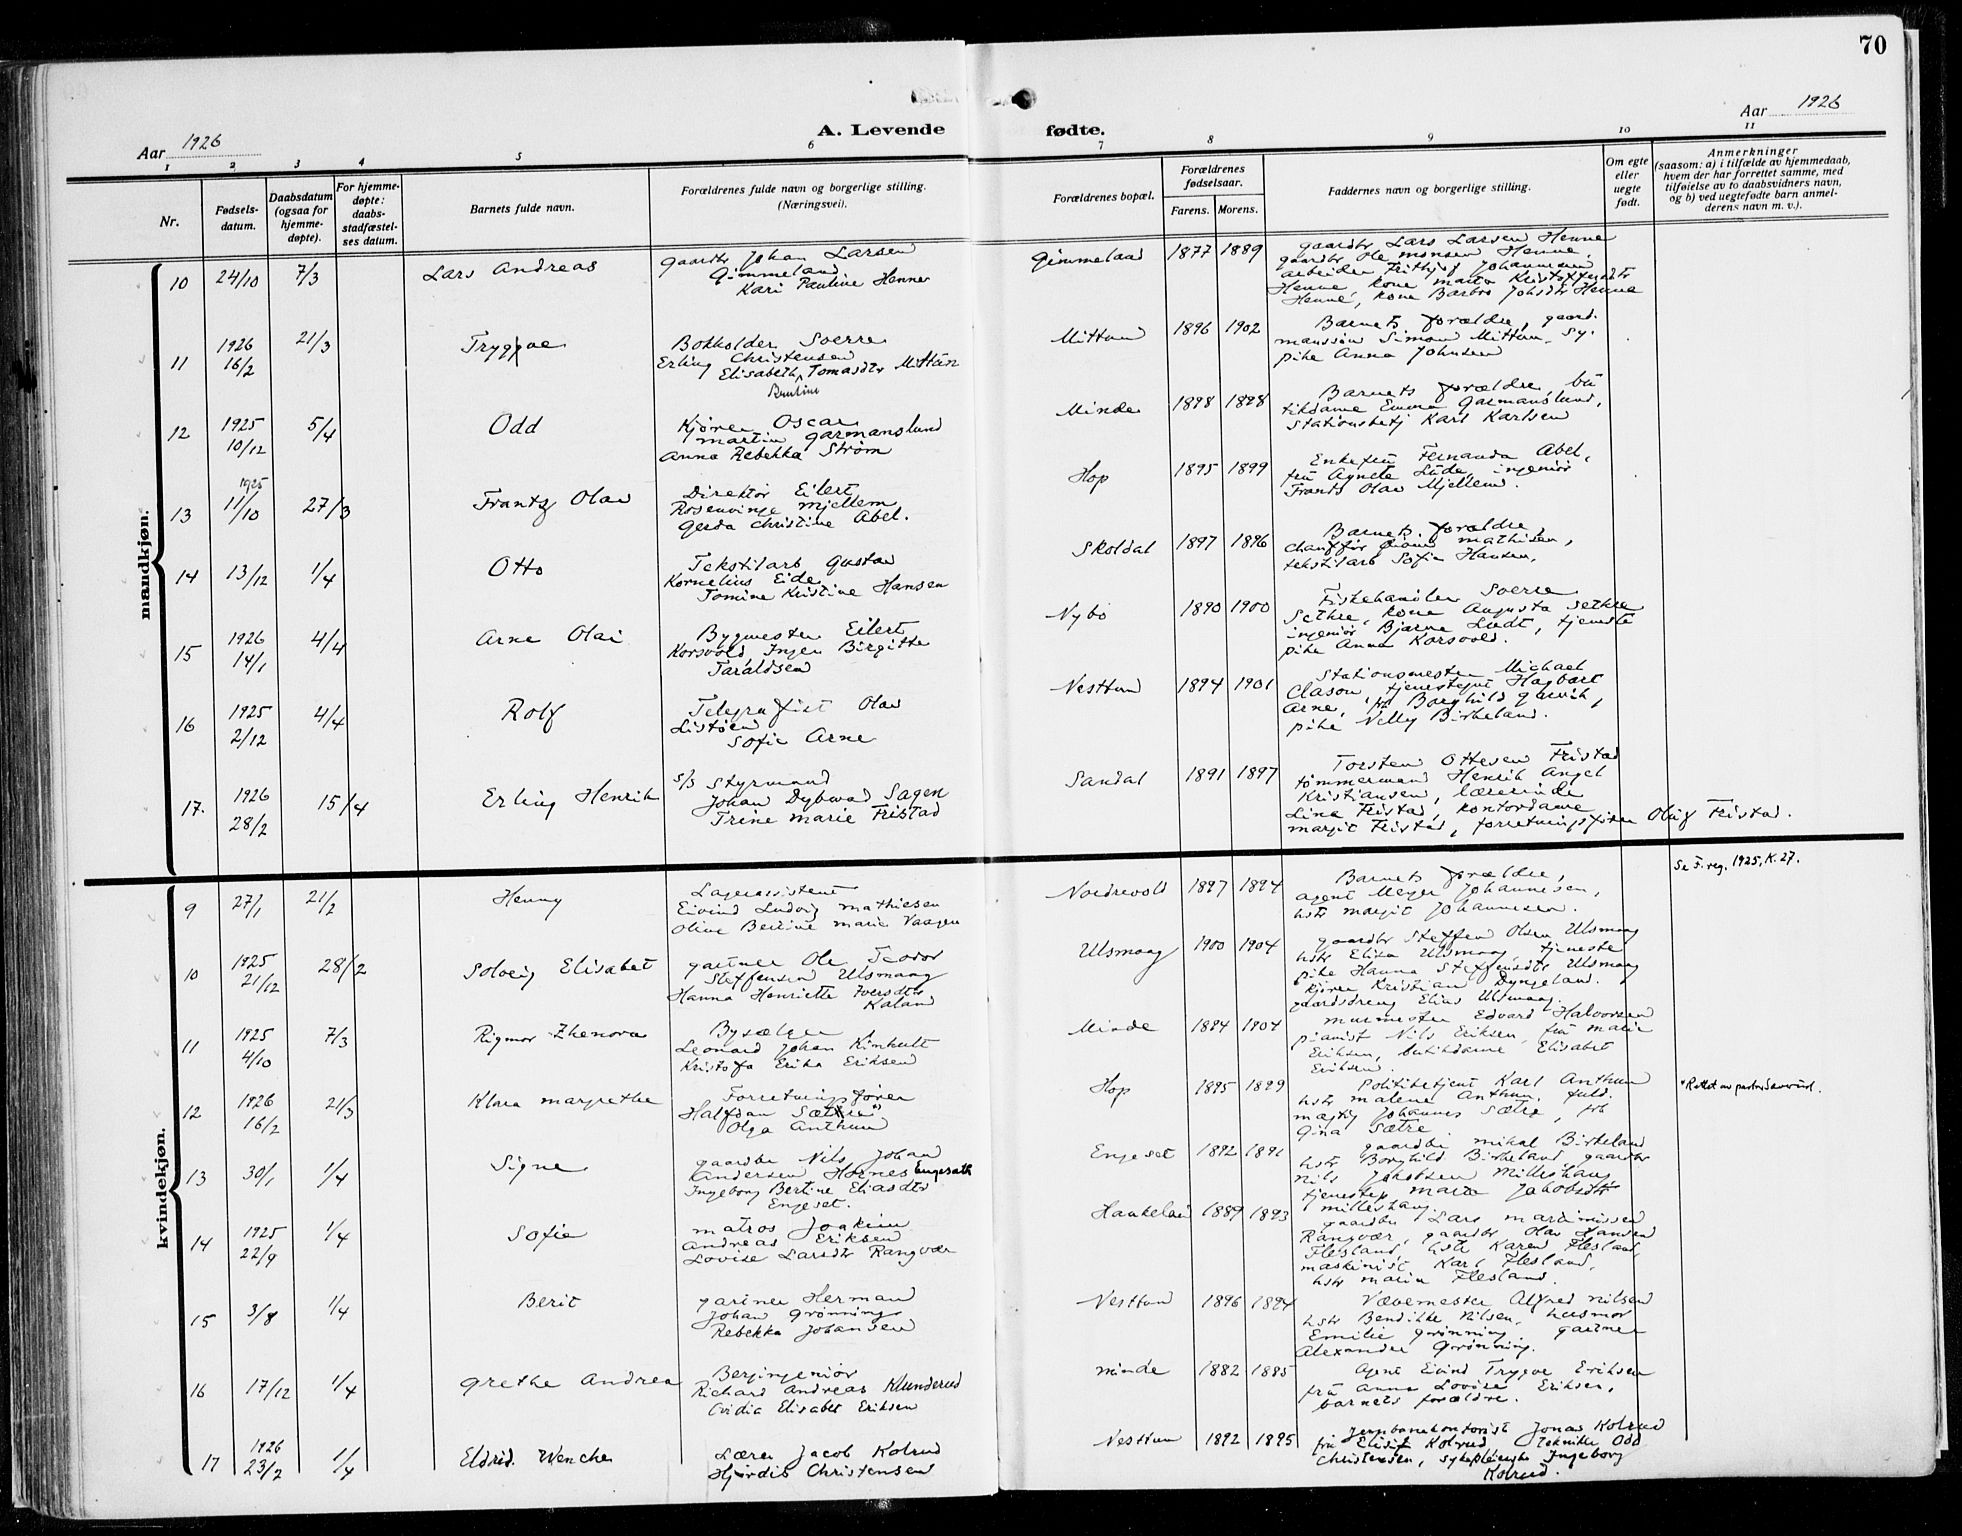 70
Aar 1926
A. Levende fødte.
Aar 1926
1 2 3 4 5 6 7 8 9 10 11
Nr.
Fødsels-
datum.
Daabsdatum
(ogsaa for
hjemme-
døpte).
For hjemme-
døpte:
daabs-
stadfæstel-
ses datum.
Barnets fulde navn.
Forældrenes fulde navn og borgerlige stilling.
(Næringsvei).
Forældrenes bopæl.
Forældrenes
fødselsaar.
Farens. Morens.
Faddernes navn og borgerlige stilling.
Om egte
eller
uegte
født.
Anmerkninger
(saasom: a) i tilfælde av hjemmedaab,
hvem der har forrettet samme, med
tilføielse av to daabsvidners navn,
og b) ved uegtefødte barn anmel-
derens navn m. v.).
mandkjøn.
10 24/10 7/3 Lars Andreas
gaardbr Johan Larsen
Gimmeland
Kari Pauline Henne
Gimmeland 1877 1889
gaardbr Lars Larsen Henne
gaardbr Ole Monsen Henne,
arbeider Fritjof Johannesen
Henne, kone Marta Kristoffersdtr
Henne, kone Barbro Johsdtr Henne
11 1926
16/2 21/3 Tryggve
Bokholder Sverre
Erling Christensen
Elisabeth Tomasdtr Mittun
Bentine
Mittun 1896 1902
Barnets forældre, gaard-
manssøn Simon Mittun, sy-
pike Anna Johnsen
12 1925
10/12 5/4 Odd
Kjører Oscar
Martin Garmanslund
Anna Rebekka Strøm
Minde 1898 1898
Barnets forældre, bu
tikdame Emma Garmanslund,
Stationsbetj Karl Karlsen
13 1925
11/10 27/3 Frantz Olav
Direktør Eilert
Rosenvinge Mjellem
Gerda Christine Abel.
Hop 1895 1899
Enkefru Fernanda Abel,
fru Agnete Lude, ingeniør
Frantz Olav Mjellem.
14 13/12 1/4 Otto
Tekstilarb Gustav
Kornelius Eide
Tomine Kristine Hansen
Skoldal 1897 1896
Barnets forældre,
chauffør Mathisen,
tekstilarb Sofie Hansen.
15 1926
14/1 4/4 Arne Olai
Bygmester Eilert
Korsvold Inger Birgitte
Taraldsen
Nybø 1890 1900
Fiskehandler Sverre
Sethre, kone Augusta Sethre
ingeniør Bjarne Ludt, tjeneste
pike Anna Korsvold.
16 1925
2/12 4/4 Rolf
Telegrafist Olav
Listøen
Sofie Arne
Nesttun 1894 1901
Stationsmester Michael
Clason, tjenestegut Hagbart
Arne, Borghild
pike Nelly Birkeland.
17. 1926
28/2 15/4 Erling Henrik
s/s Styrmand
Johan Dybwad Sagen
Trine Marie Fristad
Sandal 1891 1897
Torsten Ottesen Fristad
tømmermand Henrik Angel
Kristiansen, lærerinde
Lina Fristad, kontordame
Margit Fristad, forretningsfører Oluf Fristad.
kvindekjøn.
9 27/1 21/2 Henny
Lagerassistent
Eivind Ludvig Mathiesen
Oline Bertine Marie Vaagen
Nordrevold 1897 1894
Barnets forældre,
agent Meyer Johannesen,
hstr Margit Johannesen.
Se F. reg. 1925, K. 27.
10 1925
21/12 28/2 Solveig Elisabet
gartner Ole Teodor
Steffensen Ulsmaag
Hanna Henriette Iversdtr
Kaland
Ulsmaag 1900 1904
gaardbr Steffen Olsen Ulsmaag
hstr Elisa Ulsmaag, tjeneste
pike Hanna Steffensdtr Ulsmaag
kjører Kristian Dyngeland.
gaardsdreng Elias Ulsmaag.
11 1925
4/10 7/3 Rigmor Ehenora
Bysælger
Leonard Johan Kimhult
Kristofa Erika Eriksen
Minde 1894 1904
murmester Edvard Halvorsen
pianist Nils Eriksen, fru Marie
Eriksen, butikdame Elisabet
Eriksen.
12 1926
16/2 21/3 Klara Margrethe
Forretningsfører
Halfdan Sætre"
Olga Anthun
Hop 1895 1899
Politibetjent Karl Anthun
hstr Malene Anthun, fuld.
mægtig Johannes Sætre, frk
Gina Sætre.
"Rettet av
13 30/1 1/4 Signe
gaardbr Nils Johan
Andersen Hornes Engesæth
Ingeborg Bertine Eliasdtr
Engeset.
Engeset 1892 1891
gaardbr Mikal Birkeland
hstr Borghild Birkeland gaardbr
Nils Jakobsen Milleshaug
tjenestep Marta Jakobsdtr
Milleshaug.
14 1925
22/9 1/4 Sofie
matros Joakim
Andreas Eriksen
Lovise Larsdtr Rangvær
Haukeland 1889 1893
gaardbr Lars Martinussen
Rangvær, gaardbr Olav Hansen
Flesland, hstr Karen Flesland,
maskinist Karl Flesland,
hstr Maria Flesland.
15 3/8 1/4 Berit
gartner Herman
Johan Grønning
Rebekka Johansen
Nesttun 1896 1894
Vævemester Alfred Nilsen
hstr Bendikke Nilsen, husmor
Emilie Grønning, gartner
Alexander Grønning.
16 17/12 1/4 Grethe Andrea
Bergingeniør
Richard Andreas Klunderud
Ovidia Elisabet Eriksen
Minde 1882 1885
Agent Eivind Trygve Eriksen
fru Anna Lovise Eriksen,
barnets forældre.
17 1926
23/2 1/4 Eldrid Wenche
Lærer Jacob Kolrud
Hjørdis Christensen
Nesttun 1892 1895
Jernbanekontorist Jonas Kolrud
fru Elisif Kolrud, tekniker Odd
Christensen, sykepleierske Ingeborg
Kolrud.